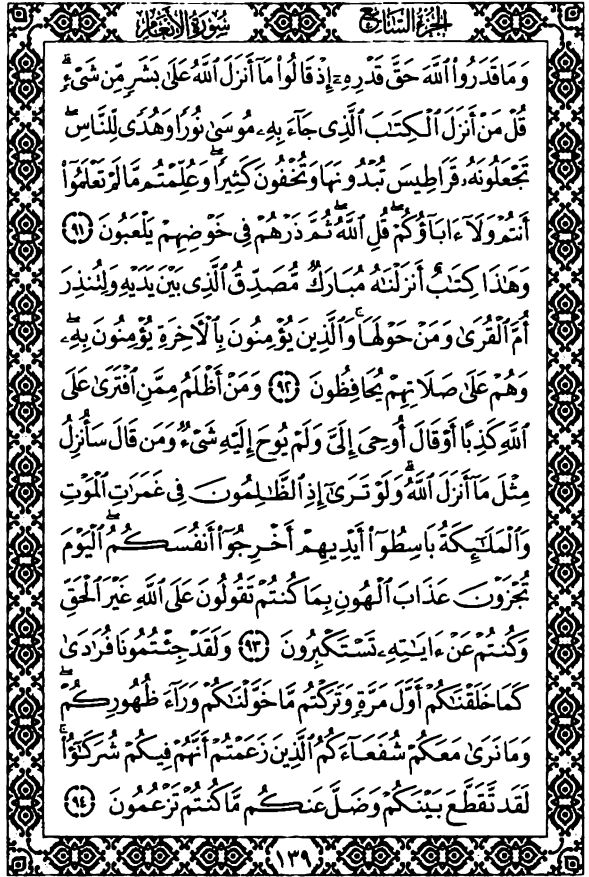 الجزء السابع
سورة الأنعام
وَمَا قَدَرُوا۟ ٱللَّهَ حَقَّ قَدْرِهِۦٓ إِذْ قَالُوا۟ مَآ أَنزَلَ ٱللَّهُ عَلَىٰ بَشَرٍ مِّن شَىْءٍ ۗ
قُلْ مَنْ أَنزَلَ ٱلْكِتَٰبَ ٱلَّذِى جَآءَ بِهِۦ مُوسَىٰ نُورًا وَهُدًى لِّلنَّاسِ ۖ
تَجْعَلُونَهُۥ قَرَاطِيسَ تُبْدُونَهَا وَتُخْفُونَ كَثِيرًا ۖ وَعُلِّمْتُم مَّا لَمْ تَعْلَمُوٓا۟
أَنتُمْ وَلَآ ءَابَآؤُكُمْ ۖ قُلِ ٱللَّهُ ۖ ثُمَّ ذَرْهُمْ فِى خَوْضِهِمْ يَلْعَبُونَ ۝٩١
وَهَٰذَا كِتَٰبٌ أَنزَلْنَٰهُ مُبَارَكٌ مُّصَدِّقُ ٱلَّذِى بَيْنَ يَدَيْهِ وَلِتُنذِرَ
أُمَّ ٱلْقُرَىٰ وَمَنْ حَوْلَهَا ۚ وَٱلَّذِينَ يُؤْمِنُونَ بِٱلْءَاخِرَةِ يُؤْمِنُونَ بِهِۦ ۖ
وَهُمْ عَلَىٰ صَلَاتِهِمْ يُحَافِظُونَ ۝٩٢ وَمَنْ أَظْلَمُ مِمَّنِ ٱفْتَرَىٰ عَلَى
ٱللَّهِ كَذِبًا أَوْ قَالَ أُوحِىَ إِلَىَّ وَلَمْ يُوحَ إِلَيْهِ شَىْءٌ وَمَن قَالَ سَأُنزِلُ
مِثْلَ مَآ أَنزَلَ ٱللَّهُ ۗ وَلَوْ تَرَىٰٓ إِذِ ٱلظَّٰلِمُونَ فِى غَمَرَٰتِ ٱلْمَوْتِ
وَٱلْمَلَٰٓئِكَةُ بَاسِطُوٓا۟ أَيْدِيهِمْ أَخْرِجُوٓا۟ أَنفُسَكُمُ ۖ ٱلْيَوْمَ
تُجْزَوْنَ عَذَابَ ٱلْهُونِ بِمَا كُنتُمْ تَقُولُونَ عَلَى ٱللَّهِ غَيْرَ ٱلْحَقِّ
وَكُنتُمْ عَنْ ءَايَٰتِهِۦ تَسْتَكْبِرُونَ ۝٩٣ وَلَقَدْ جِئْتُمُونَا فُرَٰدَىٰ
كَمَا خَلَقْنَٰكُمْ أَوَّلَ مَرَّةٍ وَتَرَكْتُم مَّا خَوَّلْنَٰكُمْ وَرَآءَ ظُهُورِكُمْ ۖ
وَمَا نَرَىٰ مَعَكُمْ شُفَعَآءَكُمُ ٱلَّذِينَ زَعَمْتُمْ أَنَّهُمْ فِيكُمْ شُرَكَٰٓؤُا۟ ۚ
لَقَد تَّقَطَّعَ بَيْنَكُمْ وَضَلَّ عَنكُم مَّا كُنتُمْ تَزْعُمُونَ ۝٩٤
١٣٩